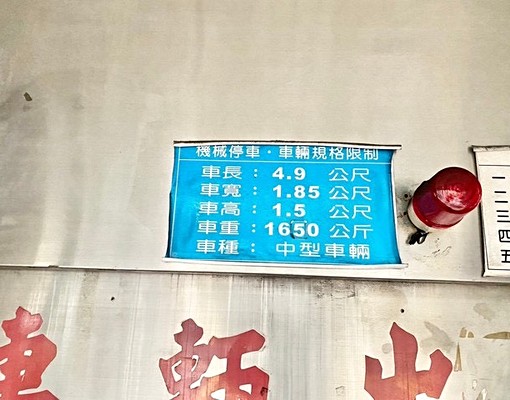 機械停車·車輛規格限制
車長：4.9 公尺
車寬：1.85 公尺
車高：1.5 公尺
車重：1650 公斤
車種：中型車輛
一二三四五
車輛出